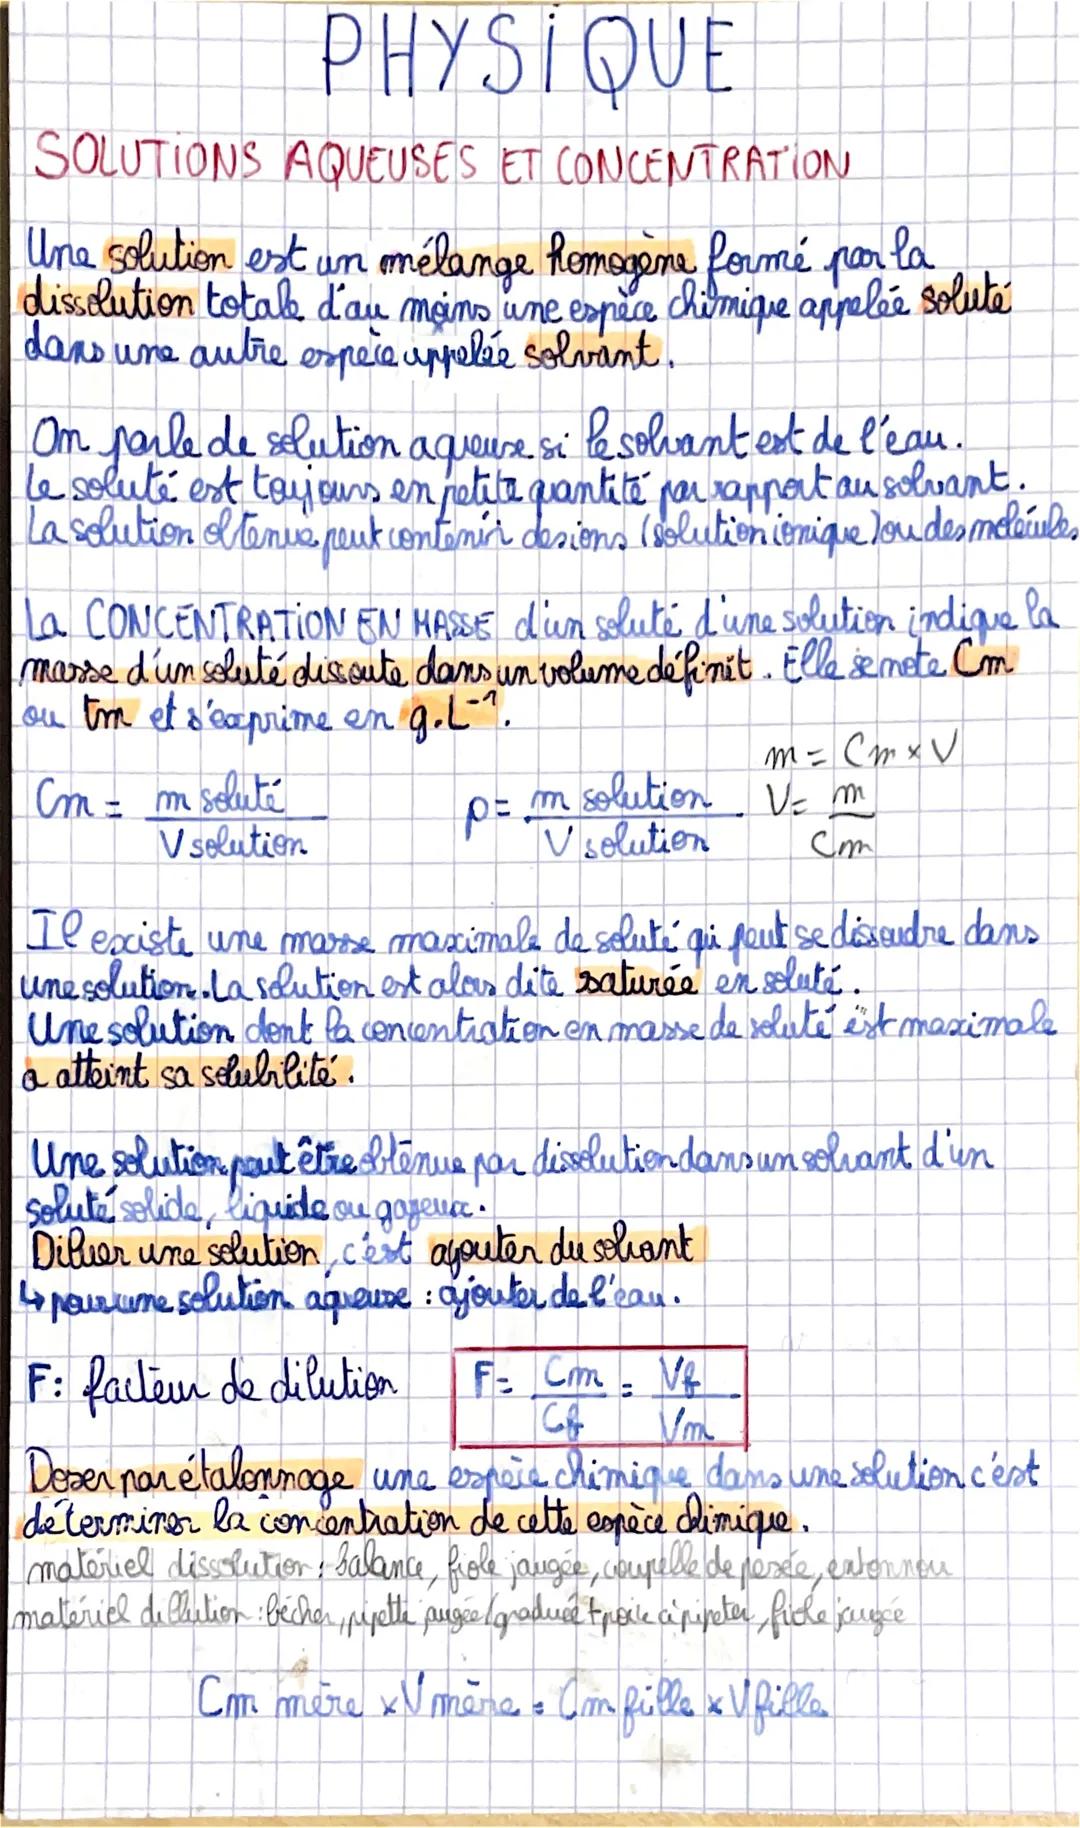 PHYSIQUE
SOLUTIONS AQUEUSES ET CONCENTRATION
Une solution est un mélange homogène formé par la
dissolution totale d'au moins une espèce chimique appelée soluté
dans une autre espèce appelée solvant.
On parle de solution aqueuse si le solvant est de l'eau.
Le soluté est toujours en petite quantité par rapport au solvant.
La solution obtenue peut contenir des ions (solution ionique) ou des molécules.
La CONCENTRATION EN MASSE d'un soluté d'une solution indique la
masse d'un soluté dissoute dans un volume définit. Elle se note Cm
ou tm et s'exprime en g.L⁻¹.
m = Cm × V
Cm = m soluté / V solution ρ = m solution / V solution V = m / Cm
Il existe une masse maximale de soluté qui peut se dissoudre dans
une solution. La solution est alors dite saturée en soluté.
Une solution dont la concentration en masse de soluté est maximale
a atteint sa solubilité.
Une solution peut être obtenue par dissolution dans un solvant d'un
soluté solide, liquide ou gazeux.
Diluer une solution, c'est ajouter du solvant
↳ pour une solution aqueuse : ajouter de l'eau.
F: facteur de dilution F = Cm / Cf = Vf / Vm
Doser par étalonnage une espèce chimique dans une solution c'est
déterminer la concentration de cette espèce chimique.
matériel dissolution : balance, fiole jaugée, coupelle de pesée, entonnoir
matériel dillution : bécher, pipette jaugée/graduée + poire à pipeter, fiole jaugée
Cm mère × V mère = Cm fille × V fille